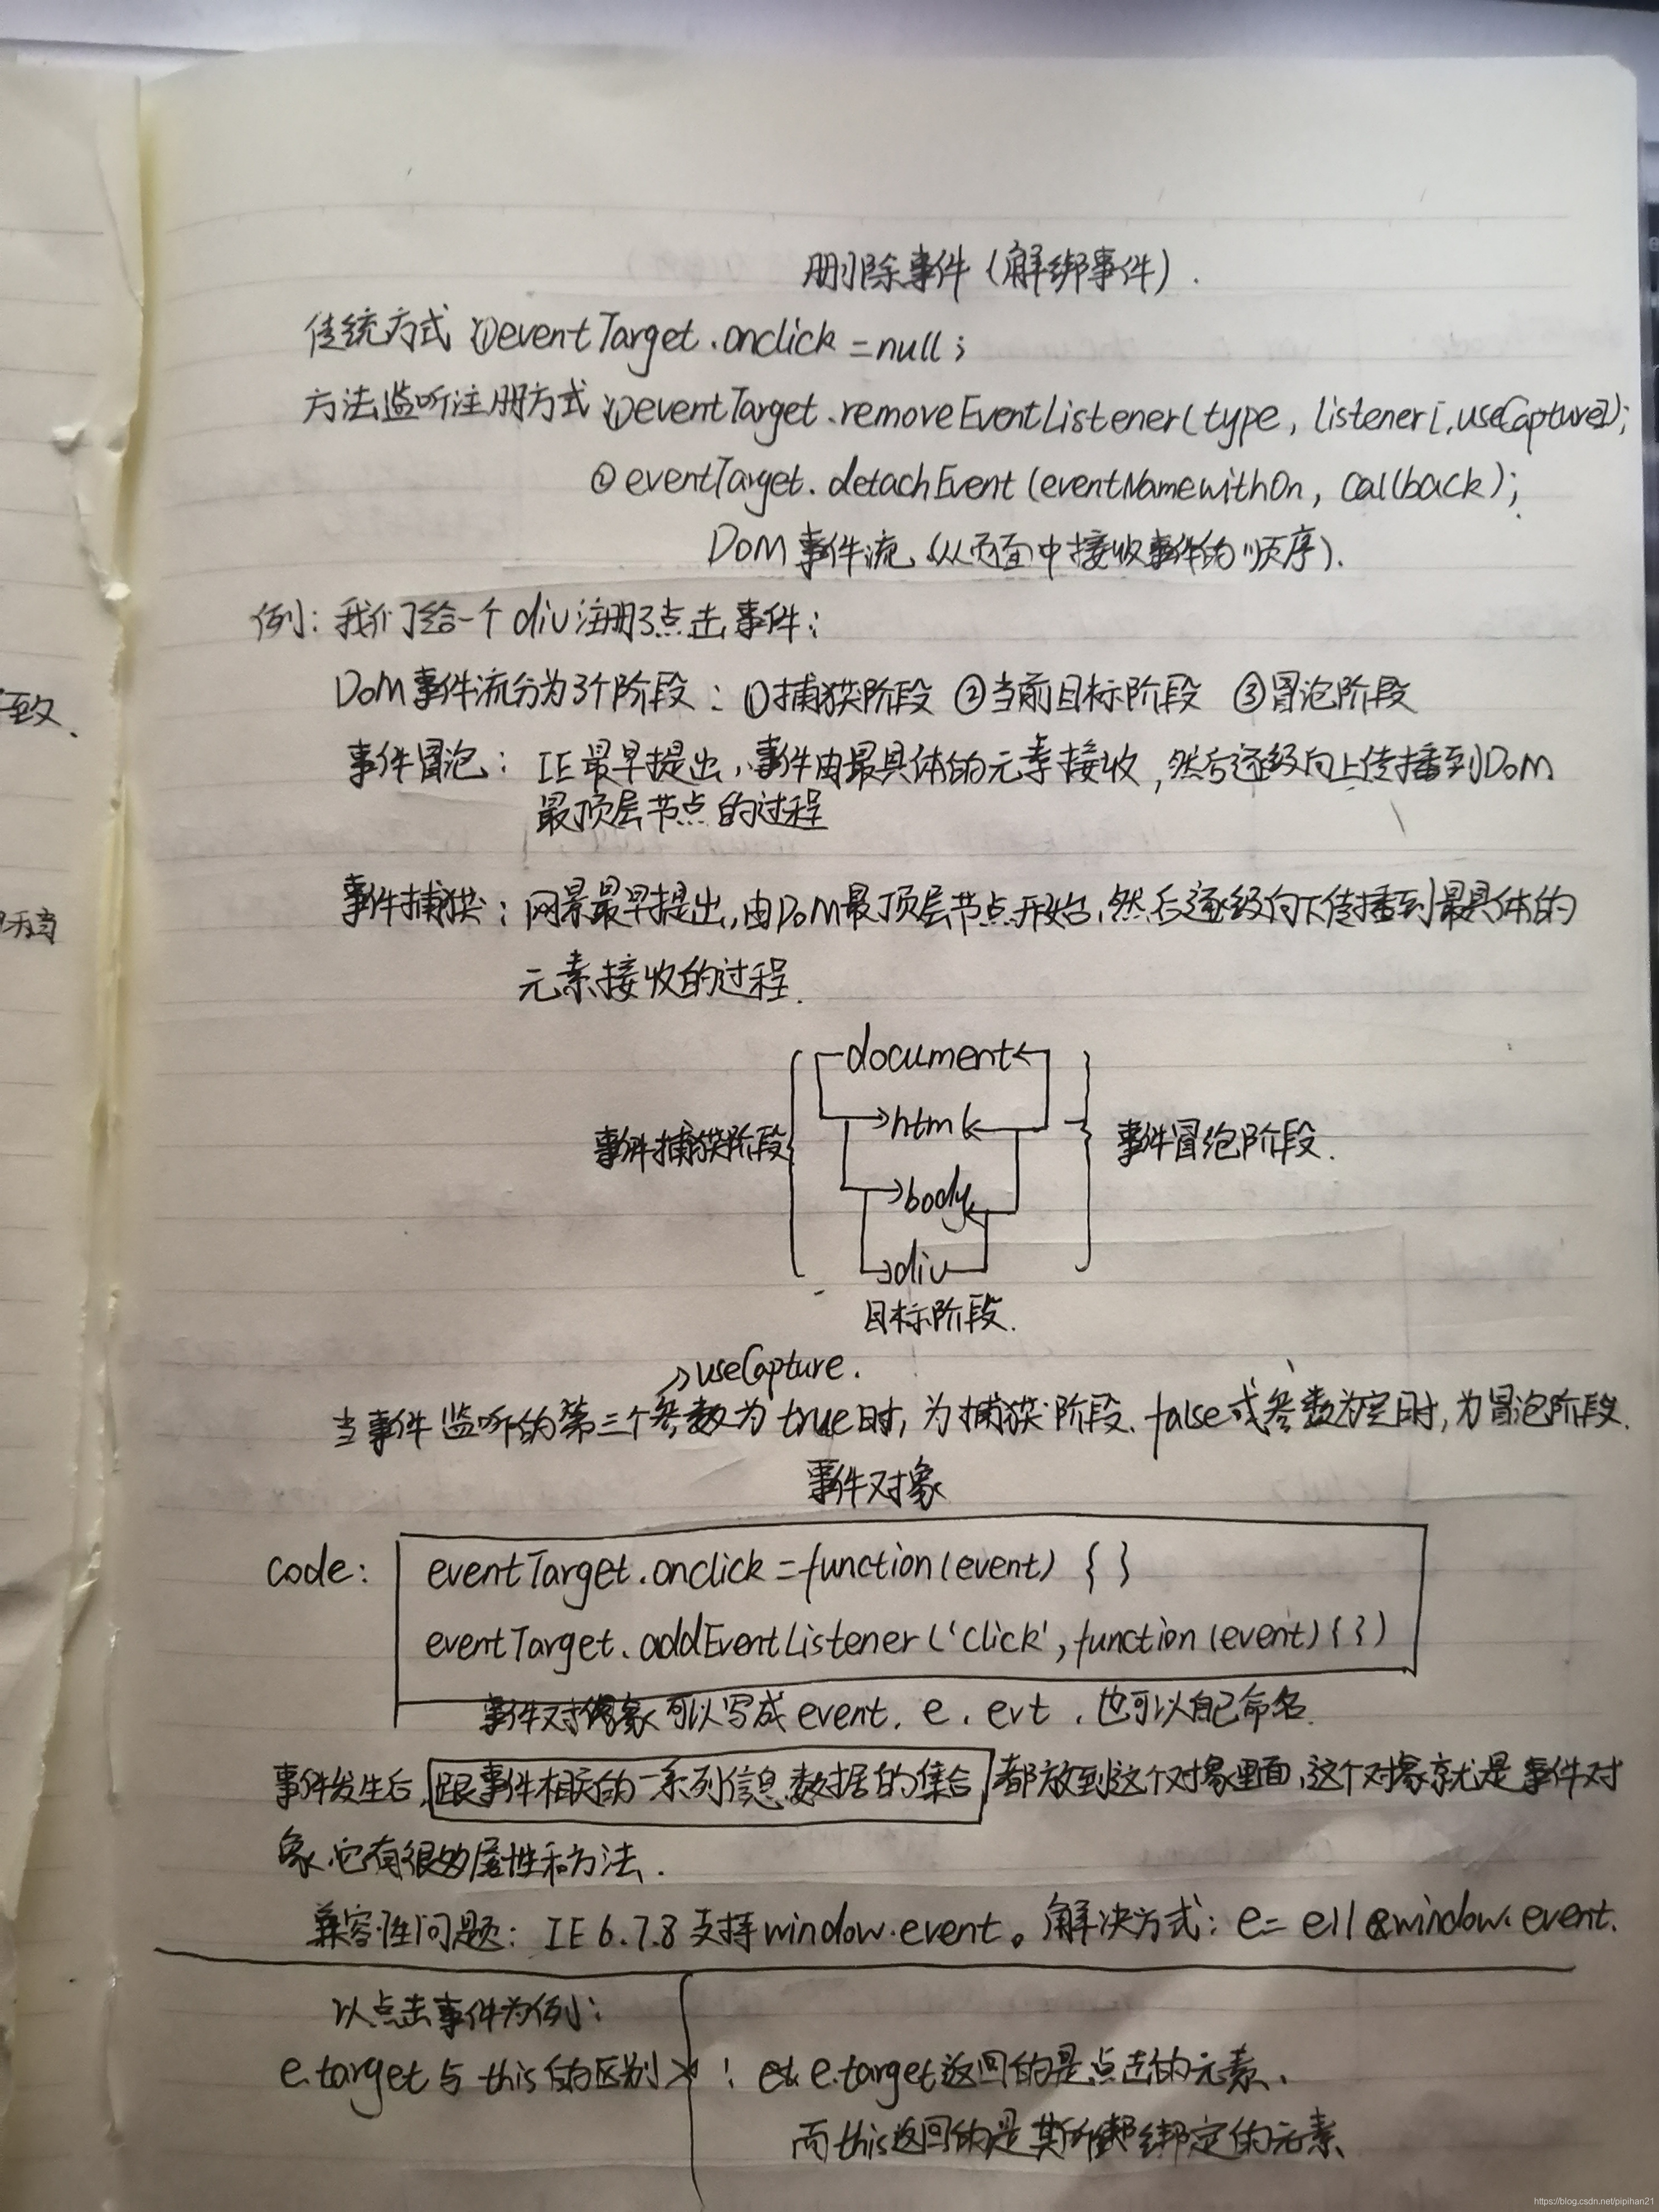 删除事件(解绑事件).
传统方式①eventTarget.onclick=null;
方法监听注册方式①eventTarget.removeEventListener(type, listener[,useCapture]);
② eventTarget.detachEvent(eventNamewithOn, callback);
DOM事件流(从页面中接收事件的顺序).
例:我们给一个div注册了点击事件:
DOM事件流分为3个阶段:①捕获阶段 ②当前目标阶段 ③冒泡阶段
事件冒泡:IE最早提出,事件由最具体的元素接收,然后逐级向上传播到DOM
最顶层节点的过程
致、
事件捕获:网景最早提出,由DOM最顶层节点开始,然后逐级向下传播到最具体的
元素接收的过程.
document
html
事件捕获阶段
事件冒泡阶段.
body
div
目标阶段.
useCapture.
当事件监听的第三个参数为true时,为捕获阶段、false或参数为空时,为冒泡阶段.
事件对象
code:
eventTarget.onclick=function(event) { }
eventTarget.addEventListener('click',function(event){ })
事件对象可以写成event、e、evt,也可以自己命名.
事件发生后,跟事件相关的一系列信息数据的集合都放到这个对象里面,这个对象就是事件对
象,它有很多属性和方法.
兼容性问题:IE6.7.8支持window.event。解决方式:e= e||window.event.
以点击事件为例:
e.target与this的区别 : e.target返回的是点击的元素、
而this返回的是其所绑定的元素
https://blog.csdn.net/pipihan21